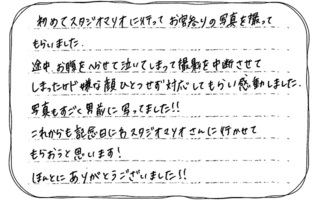 初めてスタジオマリオに行って お宮参りの写真を撮って
もらいました。
途中 お腹をへらせて泣いてしまって撮影を中断させて
しまったけど嫌な顔ひとつせず対応してもらい感動しました。
写真もすごく男前に写ってました!!
これからも記念日にもスタジオマリオさんに行かせて
もらおうと思います!
ほんとにありがとうございました!!